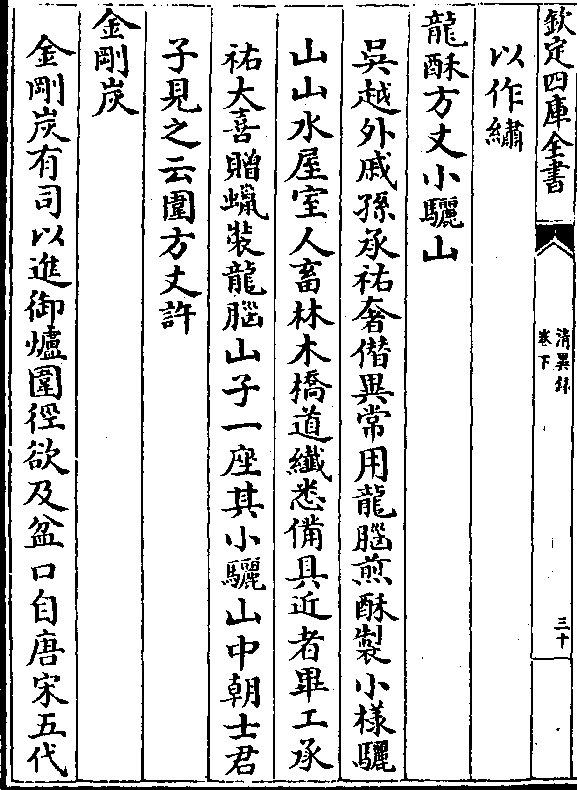 欽定四庫全書
清異錄
卷下
三十
以作繡
龍酥方丈小驪山
吳越外戚孫承祐奢僭異常用龍腦煎酥製小樣驪
山山水屋室人畜林木橋道纖悉備具近者畢工承
祐大喜贈蠟裝龍腦山子一座其小驪山中朝士君
子見之云圍方丈許
金剛炭
金剛炭有司以進御爐圍徑欲及盆口自唐宋五代